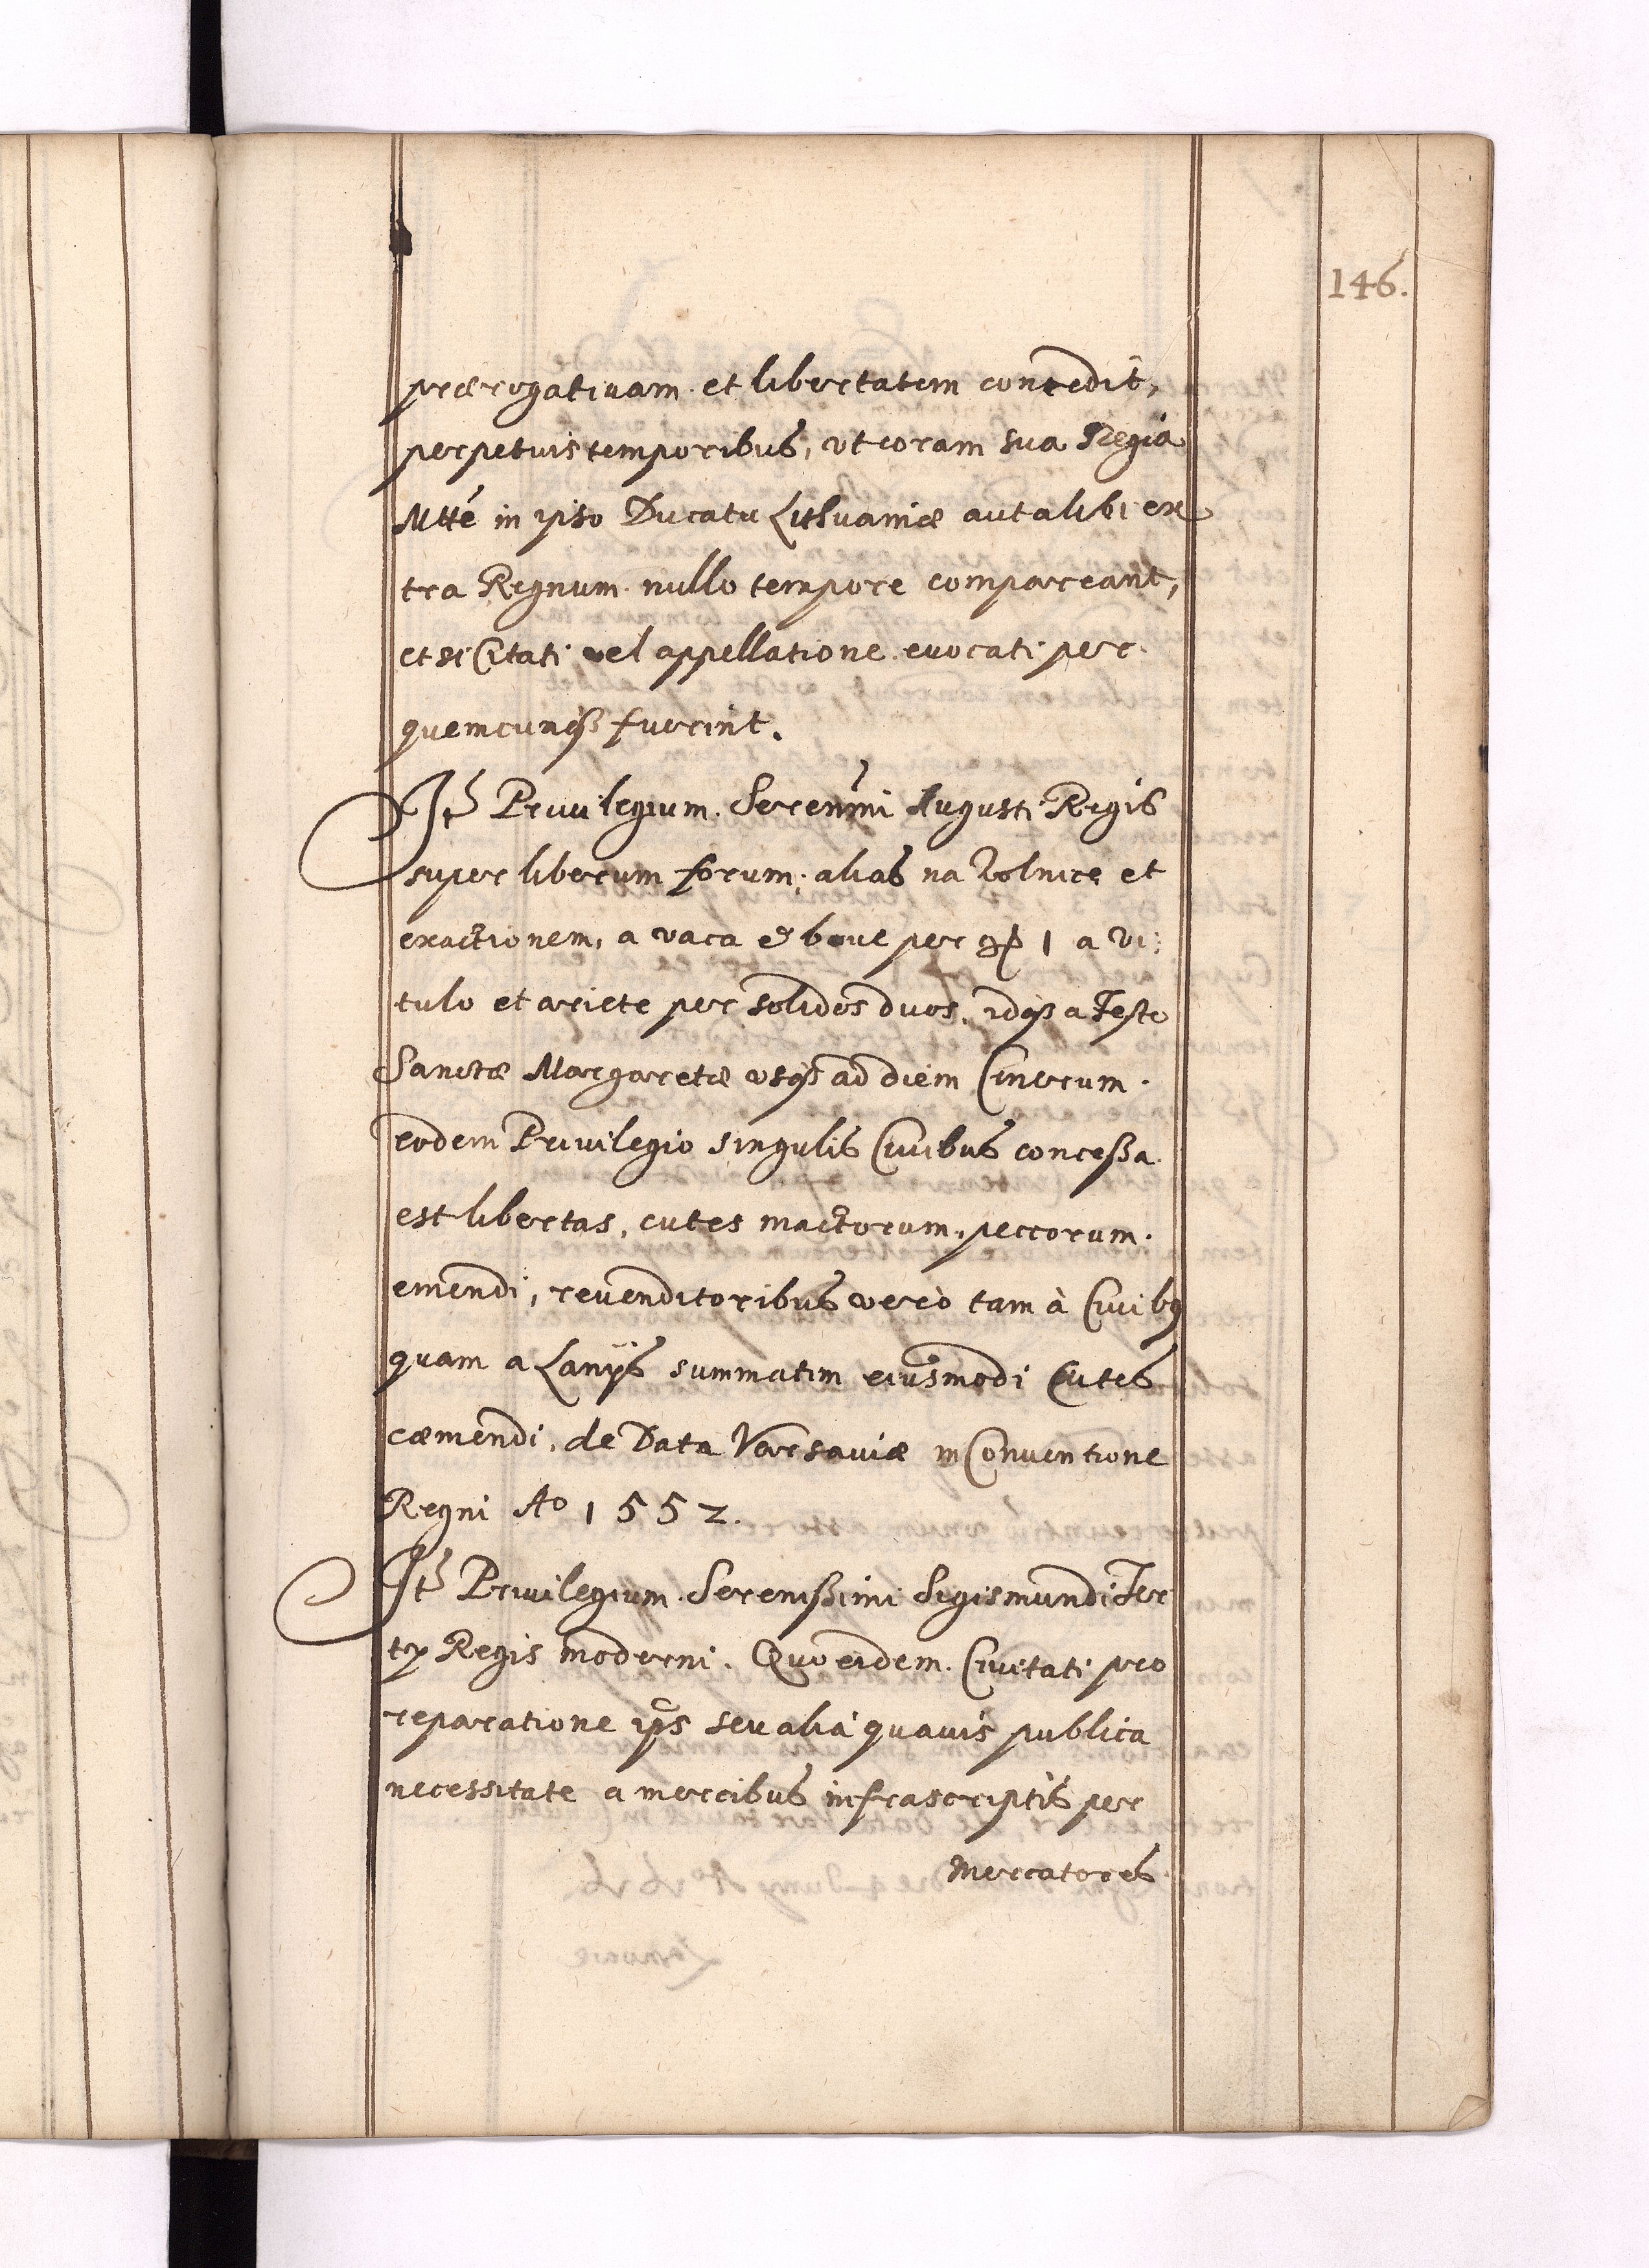 146.
prærogativam et libertatem concedit,
perpetuis temporibus, vt coram sua Regia
Mtté in ipso Ducatu Lithuaniæ aut alibi ex
tra Regnum nullo tempore compareant,
et si Citati vel appellatione euocati per
quemcunqꝫ fuerint.
It Priuilegium Serenmi Augusti Regis
super liberum forum, alias na Wolnice et
exactionem, a vaca et boue per gr 1 a vi:
tulo et ariete per solidos duos, idqꝫ a Festo
Sanctæ Margaretæ vsqꝫ ad diem Cinerum.
eodem Priuilegio singulis Ciuibus conceßa
est libertas, cutes mactorum, peccorum
emendi, reuenditoribus verò tam à Ciuibꝰ
quam a Lanijs summatim eiusmodi Cutes
cœmendi, de Data Varsauiæ in Conuentione
Regni Ao 1552.
It Priuilegium Serenißimi Sigismundi Ter
ty Regis moderni. Quo eidem Ciuitati pro
reparatione ips seu alia quauis publica
necessitate a mercibus infrascriptis per
Mercatores